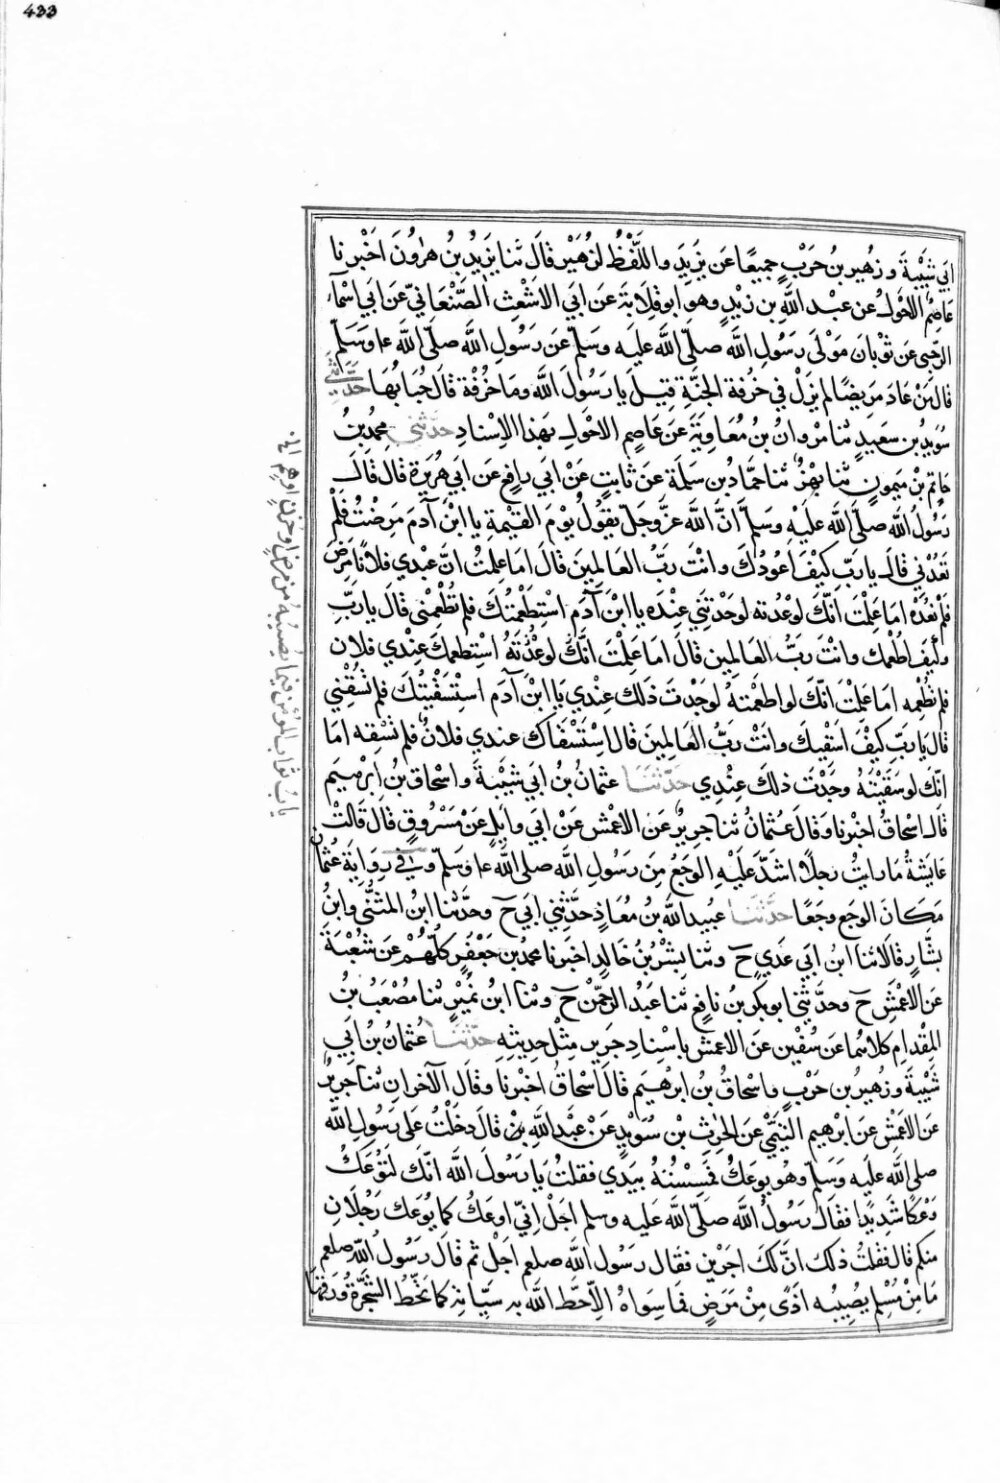 433
ابي شَيْبَةَ وزهير بن حَرْبٍ جميعًا عن يَزِيدَ واللَّفْظُ لزهَيْر قالَ ثنا يَزِيدُ بنُ هٰرُونَ اخْبرنا
عَاصِمٌ الاحْوَلُ عن عبد اللَّهِ بن زيْدٍ وهو ابو قِلابةَ عن ابي الاشْعَثِ الصَّنْعَانيّ عن ابي اسْمآءَ
الرحبي عن ثَوْبان مَوْلَى رَسُولِ اللَّه صلّى اللَّه عليه وسَلّم عن رَسُولِ اللَّه صلّى اللَّه ع وسَلّم
قال مَنْ عَادَ مَريضًا لم يزَلْ في خُرْفة الجنَّةِ قيل يا رَسُولَ اللَّه وما خُرْفة قال جَنَاهَا حَدَّثَنِي
سُوَيْدُ بن سعيدٍ ثنا مرْوانُ بنُ معاويَةَ عن عاصم الاحْولِ بهذا الاِسْنادِ حَدَّثني محمد بنُ
حَاتِم بْن مَيمونٍ ثنا بَهْزٌ ثنا حمَّاد بن سَلَمَةَ عن ثابتٍ عَنْ ابي رافِع عن ابي هُريَرةَ قال قالَ
رَسُولُ اللَّه صَلَّى اللَّه عليْهِ وسَلّم انَّ اللَّهَ عزَّ وجَلّ يقُولُ يوْمَ القيٰمةِ يا ابْنَ آدَمَ مَرِضْتُ فَلَمْ
تعُدْني قالَ يا ربّ كيْفَ اعُودُكَ وانْتَ ربُّ العَالمِينَ قالَ امَا عَلِمْتَ انّ عبْدي فلانًا مَرِضَ
فَلَمْ تَعُدْه امَا عَلِمْتَ انَّكَ لو عُدْته لوَجَدْتَنِي عِنْدَه يا ابْنَ آدَم اسْتطعَمْتُكَ فلم تطْعِمْني قال يا ربِّ
وكيْفَ اطْعِمُكَ وانْتَ ربُّ العَالمِين قالَ امَا عَلِمْتَ انَّكَ لو عُدْتَهُ اسْتطعَمَكَ عبْدي فلان
فلم تطْعِمه امَا عَلِمْتَ انّكَ لو اطعَمْتهُ لوجَدْتَ ذَلكَ عِنْدِي يَا ابْنَ آدَمَ اسْتَسْقَيْتُكَ فلم تَسْقِني
قالَ يا ربِّ كيْفَ اسْقِيكَ وانْتَ ربُّ العَالمينَ قالَ اسْتَسْقَاكَ عبدي فلانٌ فلم تَسْقِه امَا
انّك لو سَقَيْتَهُ وجَدْتَ ذلكَ عِنْدِي حَدَّثَنَا عثمانُ بنُ ابي شَيْبَةَ واسْحَاق بنُ ابرٰهيمَ
قالَ اسْحاقُ اخْبرنا وقالَ عُثمانُ ثنا جرِيرٌ عن الاعْمشِ عَنْ ابي وايلٍ عنْ مَسْرُوقٍ قالَ قالَتْ
عَايشَةُ ما رايتُ رجلًا اشدَّ عَليْهِ الوجَعُ مِنَ رَسُولِ اللَّه صلى اللَّه ع وسَلم وفي رِوايَةِ عُثمان
مَكانَ الوجَعِ وجَعًا حَدَّثَنَا عبيد اللَّه بنُ معَاذٍ حَدَّثنِي ابي ح وحَدَّثنا ابنُ المثَنَّى وابنُ
بشَّارٍ قالَا ثنا ابنُ ابي عَدِيٍّ ح وثنا بِشْرُ بْنُ خَالِدٍ اخبَرنا محمد بن جَعْفَرٍ كلُّهُمْ عنْ شعْبَةَ
عَن الاعْمَشِ ح وحدّثني ابو بكر بنُ نافِعٍ ثنا عبدُ الرحمٰن ح وثنا ابنُ نُمَيْرٍ ثنا مُصْعَبُ بنُ
المِقْدامِ كلاهُما عن سُفْيٰن عنَ الاعمش باسْنادِ جَريرٍ مِثْلَ حديثِهِ حَدَّثنَا عُثمانُ بنُ ابي
شَيْبَةَ وزهيرُ بن حَرْبٍ واسْحَاقُ بنُ ابرهيم قالَ اسْحاقُ اخْبرنا وقالَ الآخرانِ ثنا جريرٌ
عن الاعْمَشِ عن ابرٰهيم التيْمّي عن الحٰرِثِ بن سوَيْدٍ عَنْ عَبْد اللَّهِ رض قالَ دخَلْتُ على رَسُولِ اللَّه
صلى اللَّه عليْه وسَلّم وهُو يوعَكُ فَمَسِسْتُهُ بيَدي فقلتُ يا رَسُولَ اللَّه انّكَ لتُوعَكُ
وَعْكًا شَدِيدًا فقالَ رَسُولُ اللَّه صلّى اللَّه عليْه وسلم اجَلْ انّي اوعَكُ كما يُوعَكُ رَجُلانِ
منكم قال فقلتُ ذلكَ انَّ لَكَ اجريْن فقال رَسُولُ اللَّه صلعم اجَلْ ثم قالَ رَسُولُ اللَّه صلعم
مَا مِنْ مُسْلِم يصِيبُه اذًى مِنْ مَرَضٍ فما سِوَاهُ الاّ حَطَّ اللَّه به سيّاته كما تحُطُّ الشَّجَرَةُ وَرَقَهَا
بابُ ثَواب المُؤْمن فيما يُصيبُهُ من مرضٍ اوحُزنٍ او هم